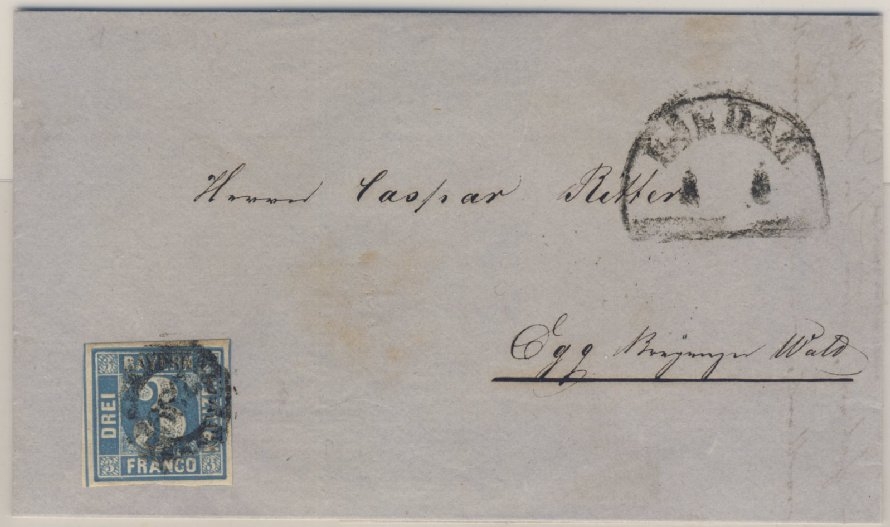 LINDAU
Herrn Caspar Ritter
Egg Bregenzer Wald
BAYERN
DREI
3
FRANCO